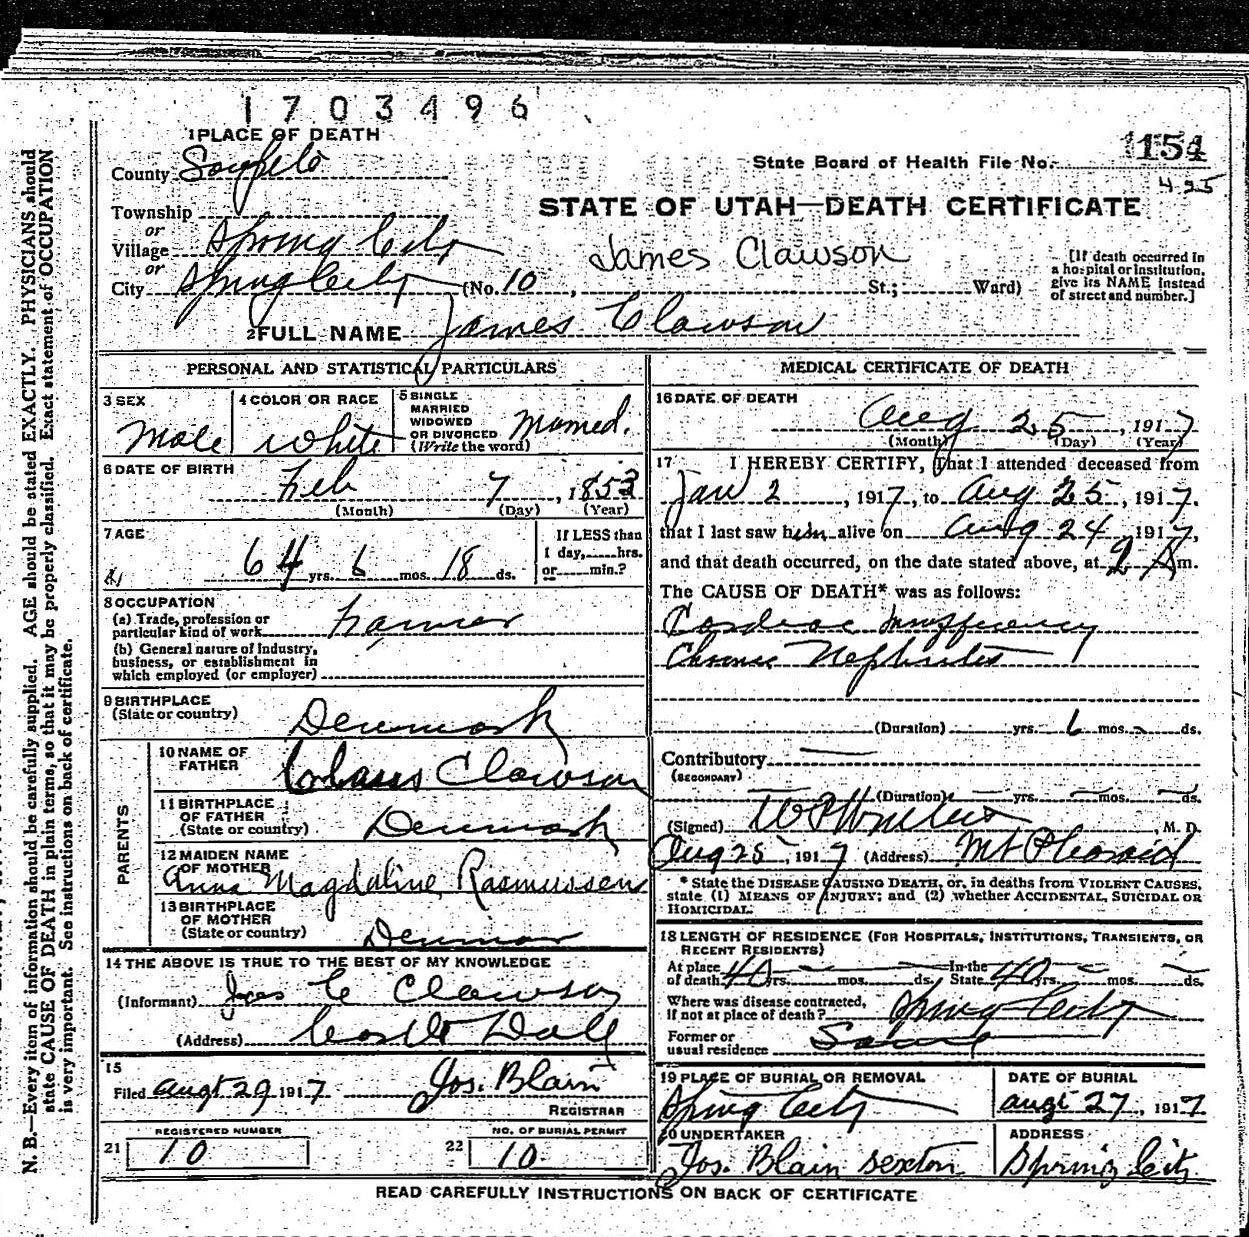 1703496
1 PLACE OF DEATH
State Board of Health File No. 154
425
County Sanpete
STATE OF UTAH—DEATH CERTIFICATE
Township
or
Village Spring City
or
City Spring City (No. 10, St.; Ward)
James Clawson
[If death occurred in
a hospital or institution,
give its NAME instead
of street and number.]
2 FULL NAME James Clawson
PERSONAL AND STATISTICAL PARTICULARS
3 SEX
Male
4 COLOR OR RACE
White
5 SINGLE
MARRIED
WIDOWED
OR DIVORCED
(Write the word)
Married.
6 DATE OF BIRTH
Feb 7, 1853
(Month) (Day) (Year)
7 AGE
64 yrs. 6 mos. 18 ds.
If LESS than
1 day, hrs.
or min.?
8 OCCUPATION
(a) Trade, profession or
particular kind of work Farmer
(b) General nature of industry,
business, or establishment in
which employed (or employer)
9 BIRTHPLACE
(State or country) Denmark
PARENTS
10 NAME OF
FATHER
Claus Clawson
11 BIRTHPLACE
OF FATHER
(State or country) Denmark
12 MAIDEN NAME
OF MOTHER
Anna Magdaline Rasmussen
13 BIRTHPLACE
OF MOTHER
(State or country) Denmar
14 THE ABOVE IS TRUE TO THE BEST OF MY KNOWLEDGE
(Informant) Jas C Clawson
(Address) Castle Dall
15
Filed Augt 29 1917 Jos. Blain
REGISTRAR
REGISTERED NUMBER
21 10
NO. OF BURIAL PERMIT
22 10
MEDICAL CERTIFICATE OF DEATH
16 DATE OF DEATH
Aug 25, 1917
(Month) (Day) (Year)
17 I HEREBY CERTIFY, That I attended deceased from
Jan 2, 1917, to Aug 25, 1917.
that I last saw him alive on Aug 24 1917,
and that death occurred, on the date stated above, at 2 A m.
The CAUSE OF DEATH* was as follows:
Cardiac Insufficiency
Chronic Nephritis
(Duration) yrs. 6 mos. ds.
Contributory
(SECONDARY)
(Duration) yrs. mos. ds.
(Signed) M. D.
Aug 25, 1917 (Address) Mt Pleasant
* State the DISEASE CAUSING DEATH, or, in deaths from VIOLENT CAUSES,
state (1) MEANS OF INJURY; and (2) whether ACCIDENTAL, SUICIDAL OR
HOMICIDAL.
18 LENGTH OF RESIDENCE (FOR HOSPITALS, INSTITUTIONS, TRANSIENTS, OR
RECENT RESIDENTS)
At place
of death 40 yrs. mos. ds. In the
State 40 yrs. mos. ds.
Where was disease contracted,
if not at place of death? Spring City
Former or
usual residence Same
19 PLACE OF BURIAL OR REMOVAL
Spring City
DATE OF BURIAL
Augt 27, 1917
20 UNDERTAKER
Jos. Blain sexton
ADDRESS
Spring City
READ CAREFULLY INSTRUCTIONS ON BACK OF CERTIFICATE
N. B.—Every item of information should be carefully supplied. AGE should be stated EXACTLY. PHYSICIANS should
state CAUSE OF DEATH in plain terms, so that it may be properly classified. Exact statement of OCCUPATION
is very important. See instructions on back of certificate.